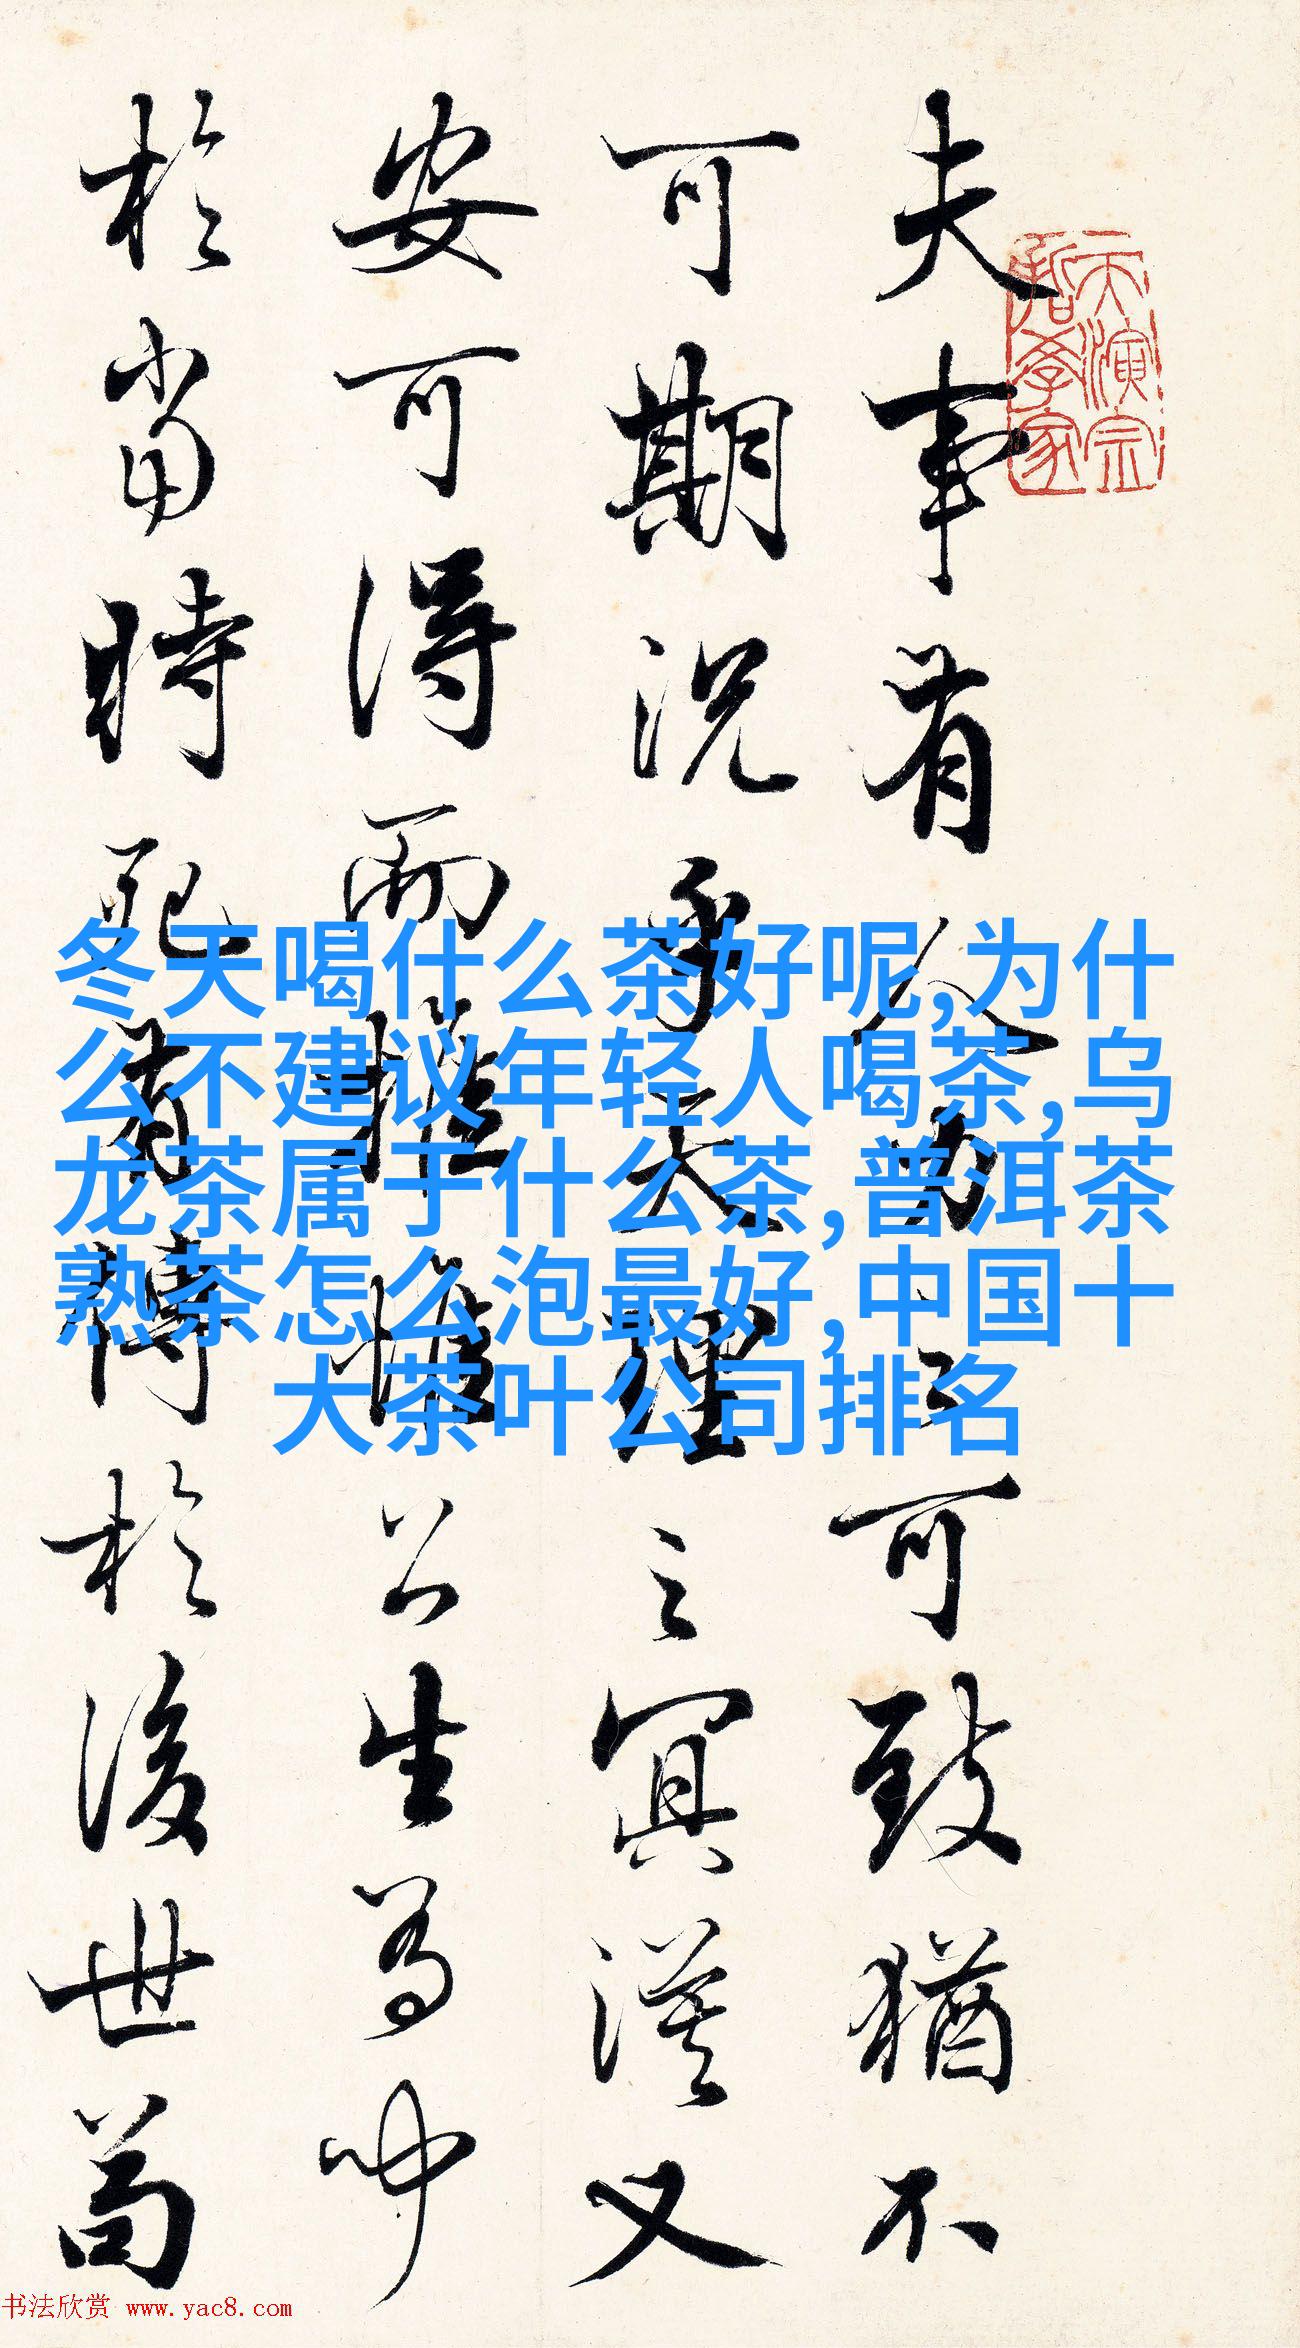 夫事有人力之可致猶不
可期況乎天理之冥漠又
安可得而推惟公生有聞
於當時死有傳於後世苟
天演宗
哲學家
冬天喝什么茶好呢,为什
么不建议年轻人喝茶,乌
龙茶属于什么茶,普洱茶
熟茶怎么泡最好,中国十
大茶叶公司排名
书法欣赏 www.yac8.com